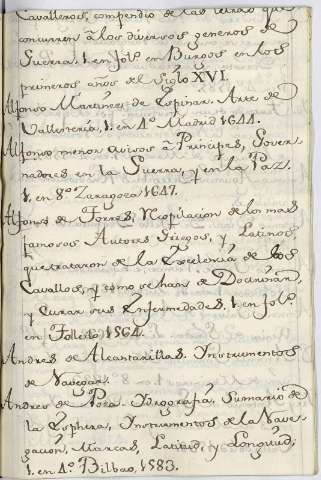 Cavalleros, compendio de las letras que
concurren a los diversos generos de
Guerra. 1. en fol. en Burgos en los
primeros años del Siglo XVI.
Alfonso Martinez de Espinar. Arte de
Vallesteria, 1. en 4.º Madrid 1644.
Alfonso menor avisos a Principes, Gover-
nadores en la Guerra, y en la Paz.
1. en 8.º Zaragoza 1647.
Alfonso de Torres, Recopilacion de los mas
famosos Autores Griegos, y Latinos
que trataron de la Excelencia de los
Cavallos, y como se han de Doctrinar,
y Curar sus Enfermedades, 1. en fol.
en Tolledo 1564.
Andres de Alcantarillas. Ynstrumentos
de Navegar.
Andres de Poza. Ydrografia. Sumario de
la Esphera, Ynstrumentos de la Nave-
gacion, Marcas, Latitud, y Longitud;
1. en 4.º Bilbao, 1583.